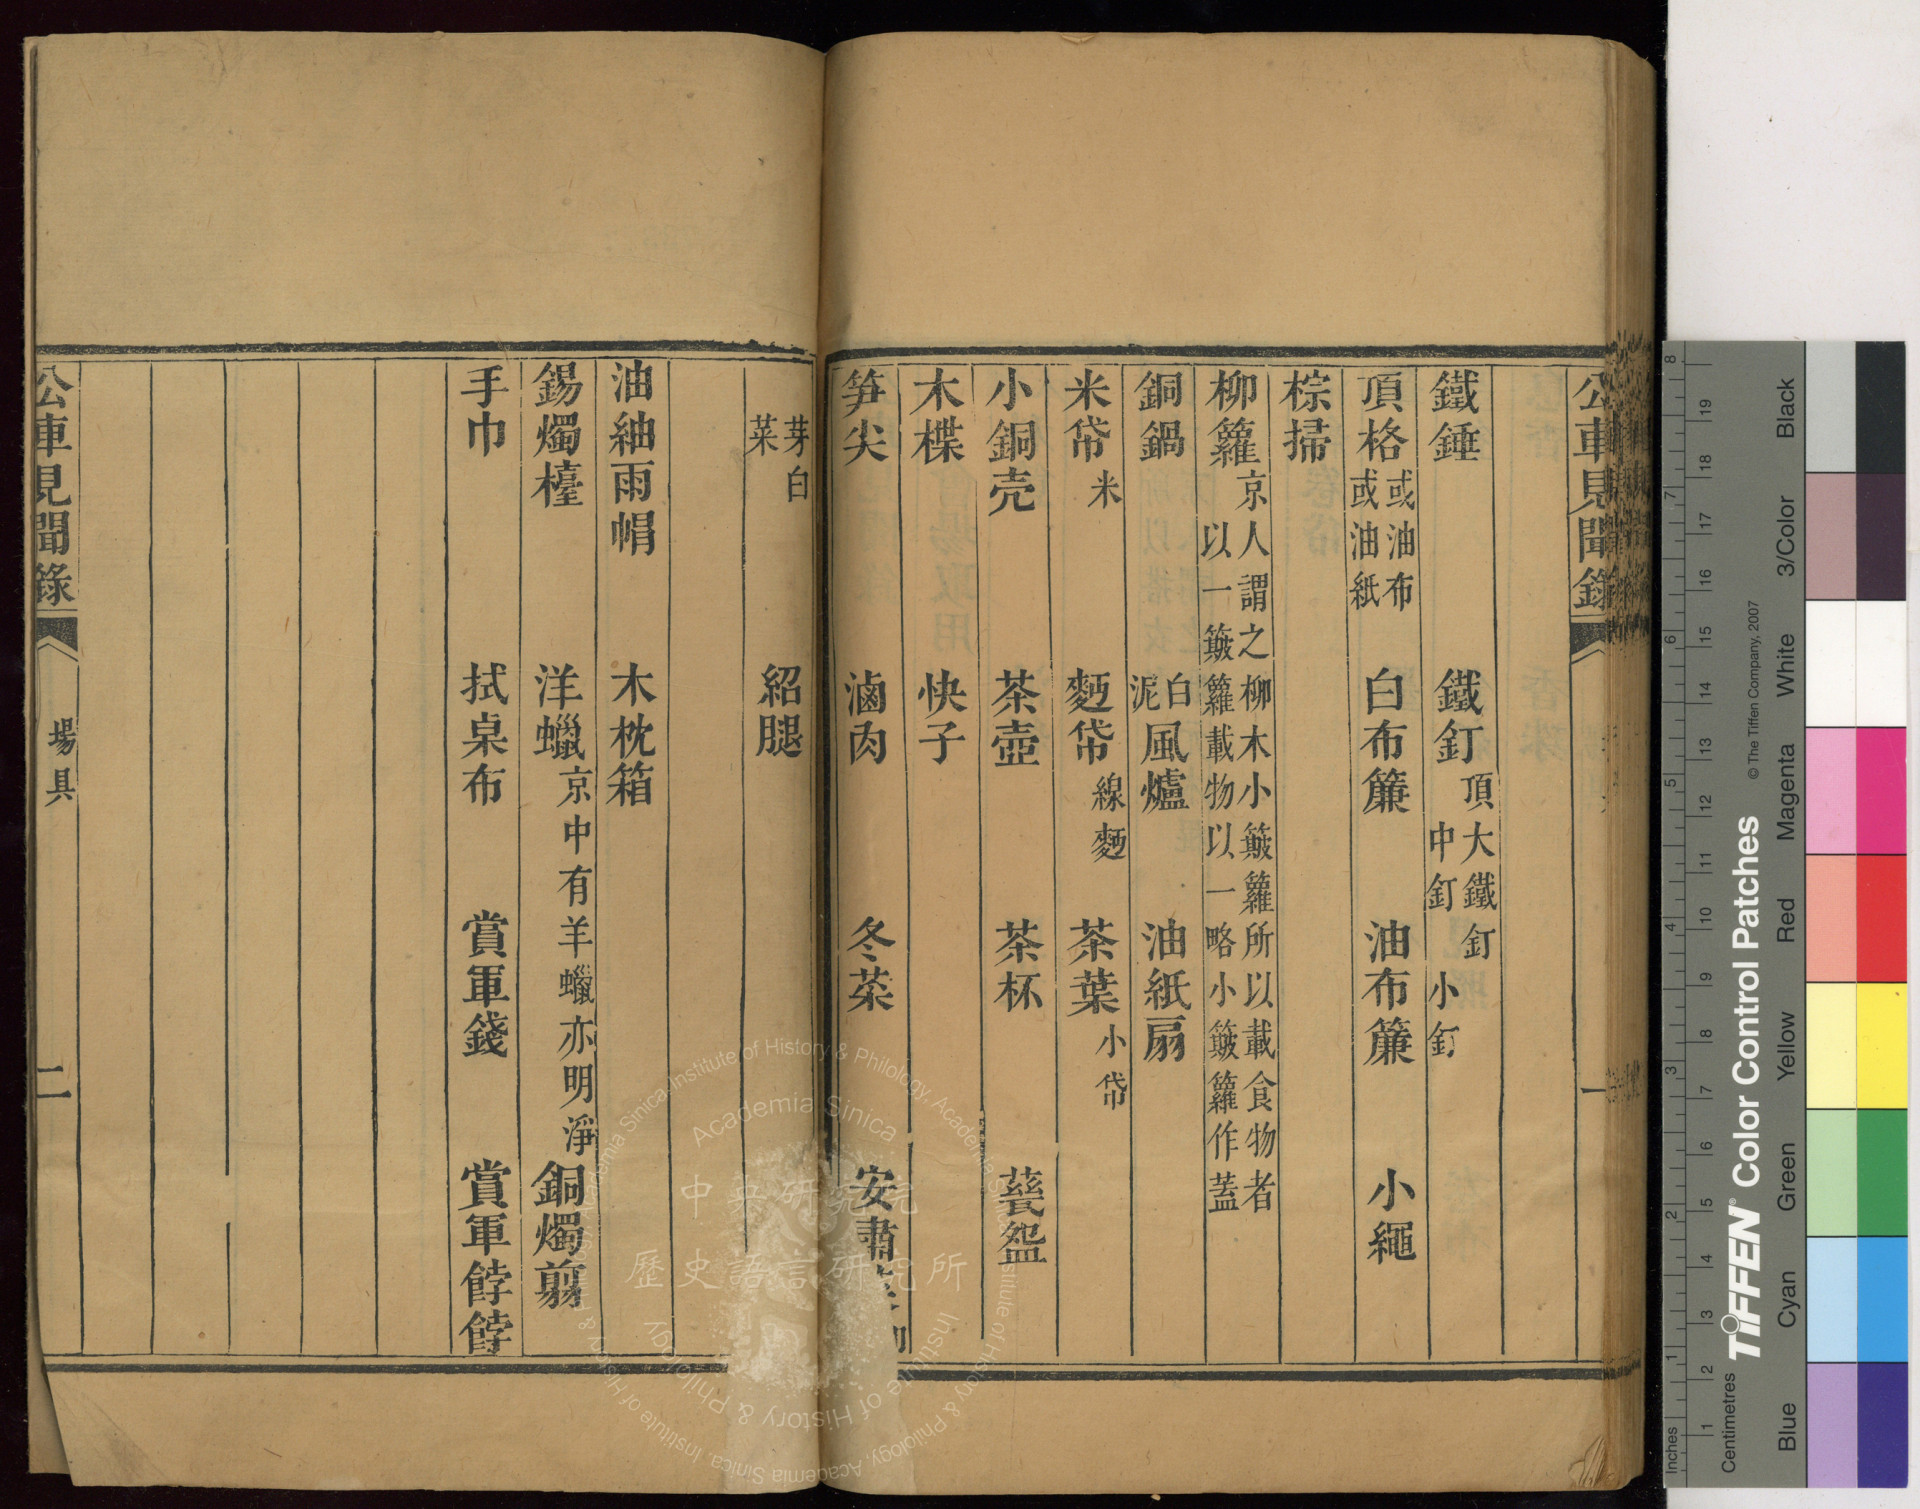 公車見聞錄 一
鐵錘 鐵釘 頂大鐵釘 小釘 中釘
頂格 或油布 或油紙 白布簾 油布簾 小繩
棕掃
柳籮 京人謂之柳木小簸籮所以載食物者
以一簸籮載物以一略小簸籮作蓋
銅鍋 白泥風爐 油紙扇
米帒 米 麪帒 線麪 茶葉 小帒
小銅壳 茶壺 茶杯 甆盌
木楪 快子
笋尖 滷肉 冬菜 安肅
芽白菜 紹腿
油紬雨帽 木枕箱
錫燭檯 洋蠟 京中有羊蠟亦明淨 銅燭剪
手巾 拭桌布 賞軍錢 賞軍餑餑
公車見聞錄 場具 二
中央研究院
歷史語言研究所
Academia Sinica
Institute of History & Philology, Academia Sinica
Centimetres
Inches
TIFFEN® Color Control Patches
© The Tiffen Company, 2007
Blue Cyan Green Yellow Red Magenta White 3/Color Black